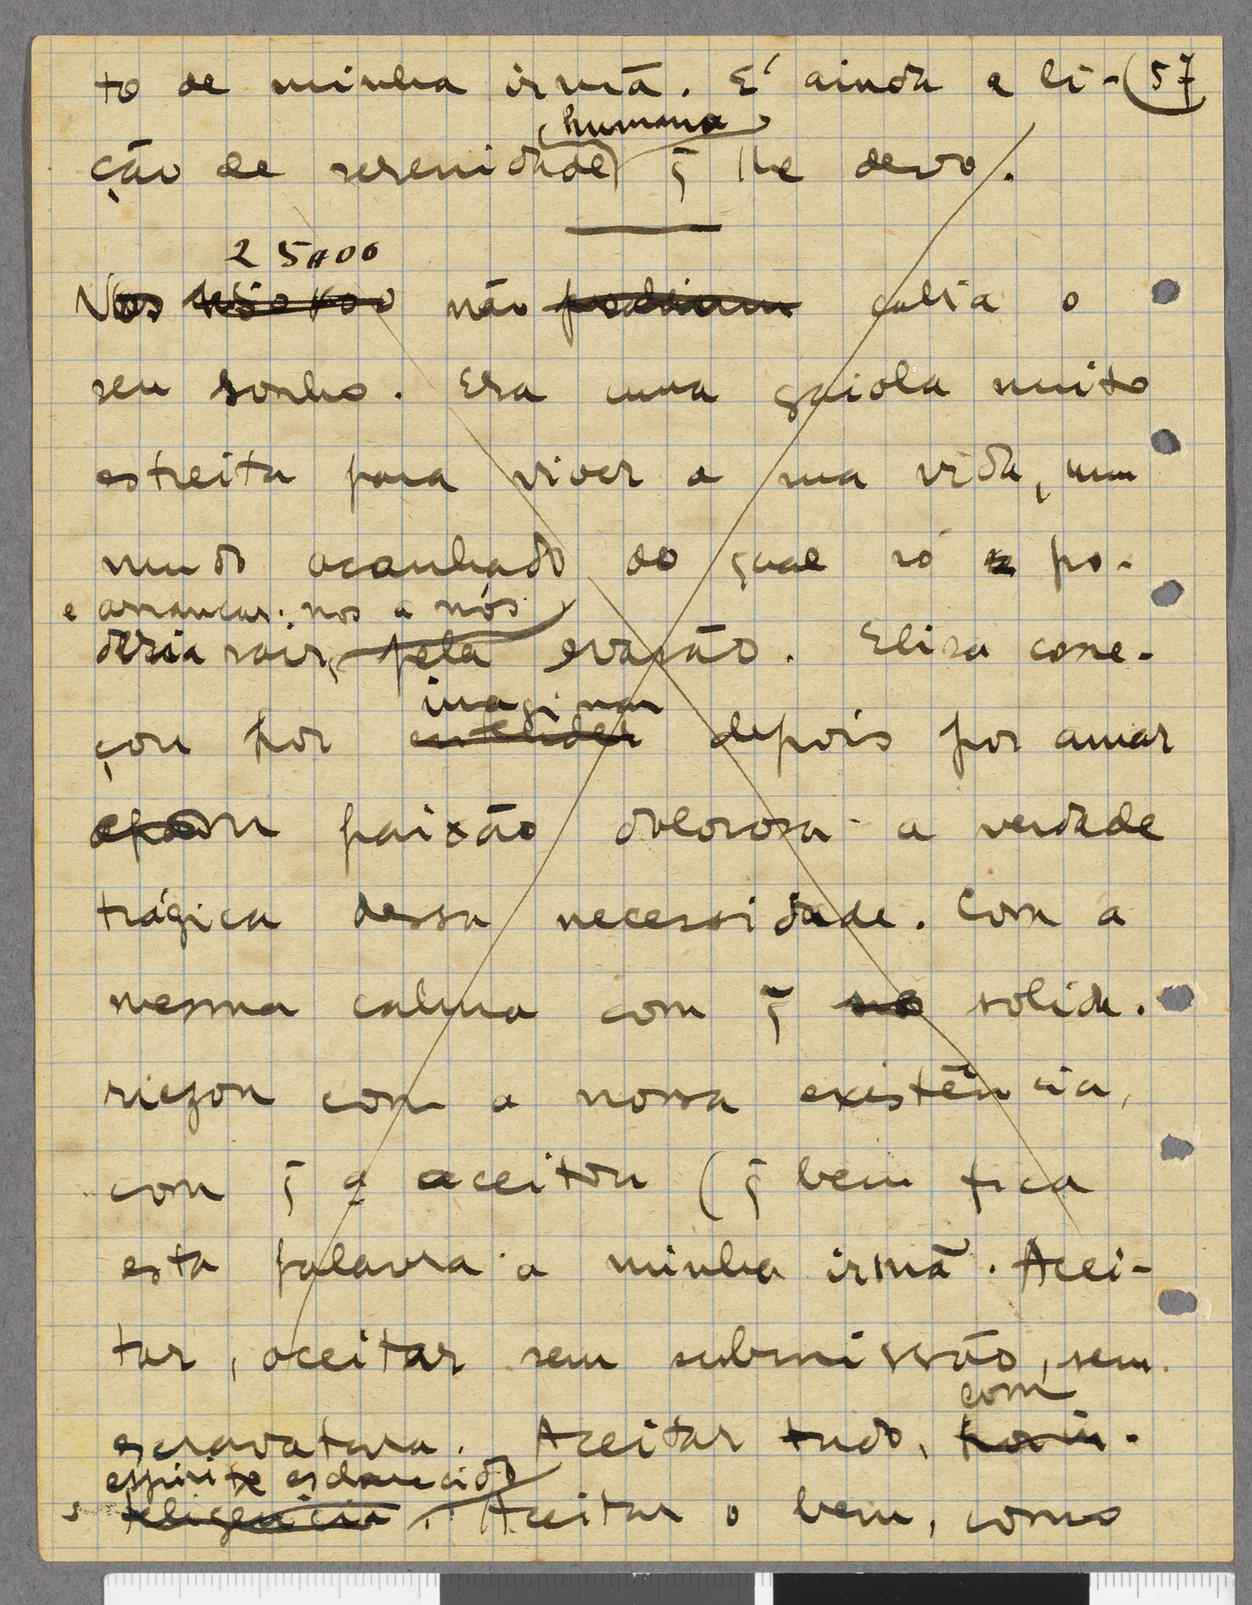 to de minha irmã. E' ainda a li- (57
humana
ção de serenidade q̃ lhe devo.
25$00
Nos não podiam cabia o
seu sonho. Era uma gaiola muito
estreita para viver a sua vida, um
mundo acanhado do qual só po-
e arrancar-nos a nós
deria sair, pela evasão. Elisa come-
imaginar
çou por entender depois por amar
com paixão dolorosa a verdade
trágica dessa necessidade. Com a
mesma calma com q̃ se solida-
riezou com a nossa existência,
com q̃ a aceitou (q̃ bem fica
esta palavra a minha irmã. Acei-
tar, aceitar sem submissão, sem
com
escravatura. Aceitar tudo, por in-
espirito esclarecido
teligencia. Aceitar o bem, como